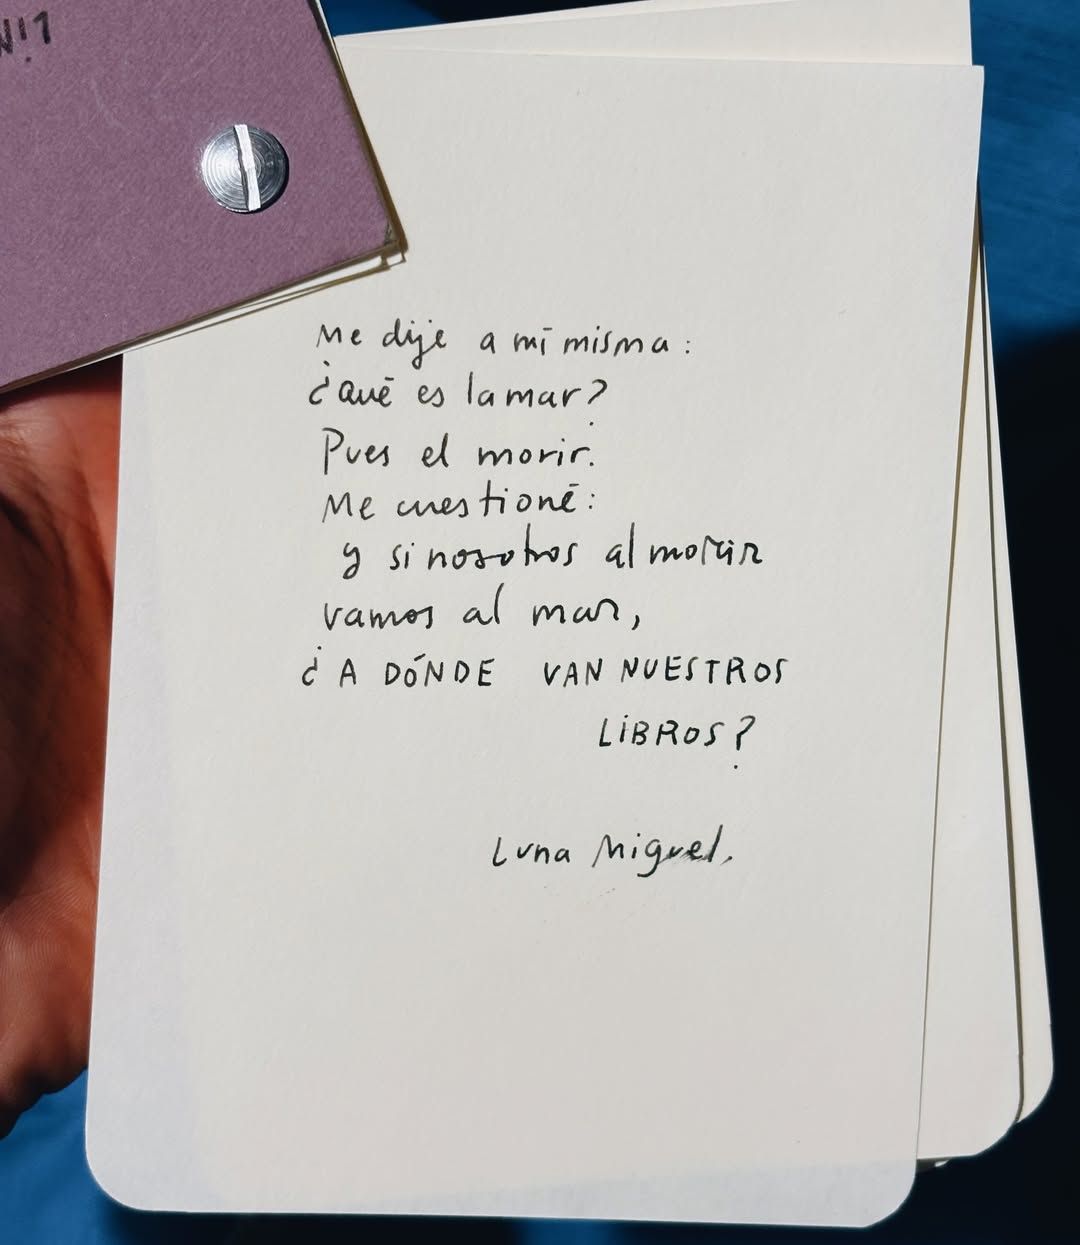 Me dije a mí misma:
¿Qué es la mar?
Pues el morir.
Me cuestioné:
y si nosotros al morir
vamos al mar,
¿A DÓNDE VAN NUESTROS
LIBROS?
Luna Miguel.